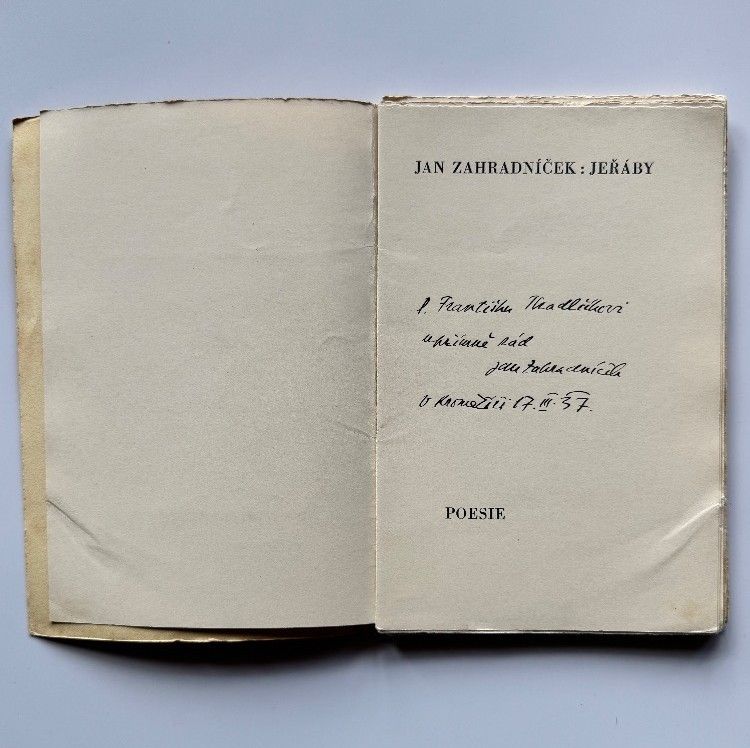 JAN ZAHRADNÍČEK: JEŘÁBY
P. Františku
upřímně rád
Jan Zahradníček
V Kroměříži 17. III. 37.
POESIE